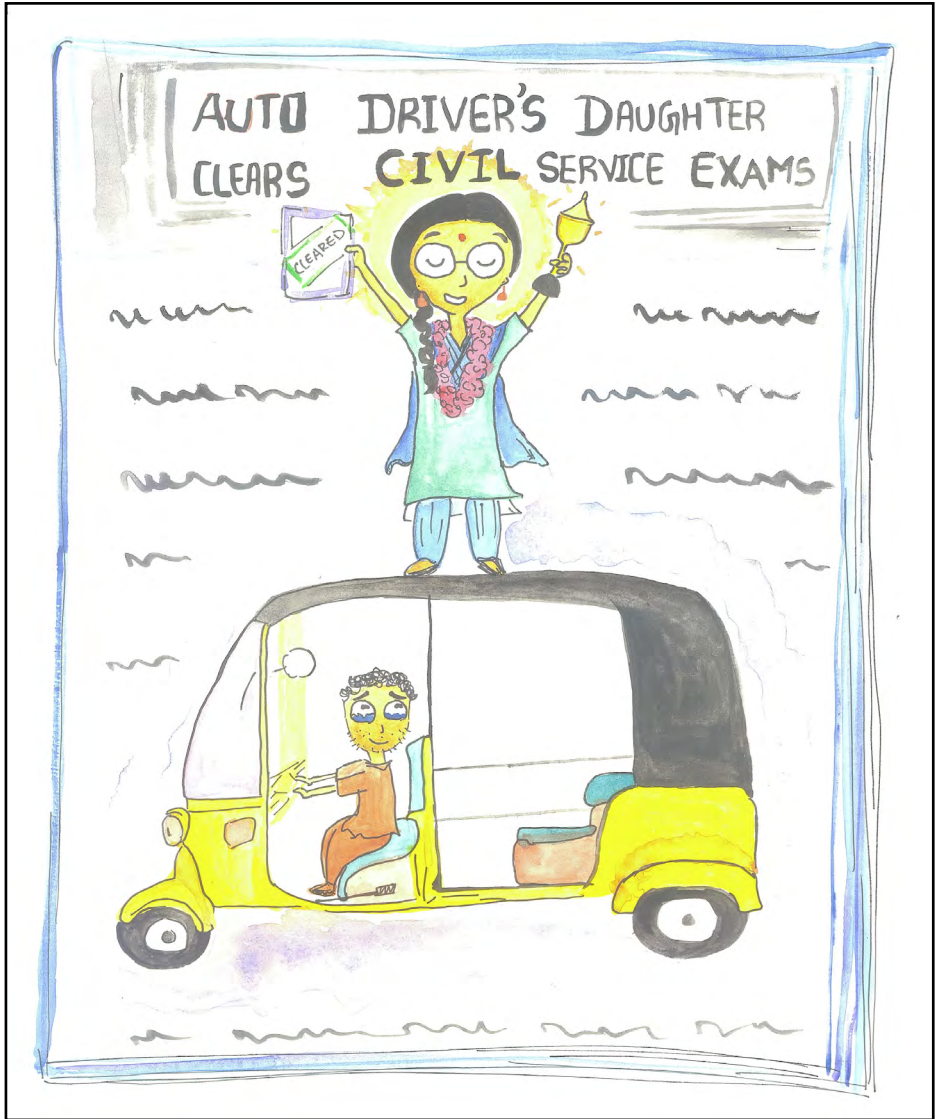 AUTO DRIVER'S DAUGHTER
CLEARS CIVIL SERVICE EXAMS
CLEARED